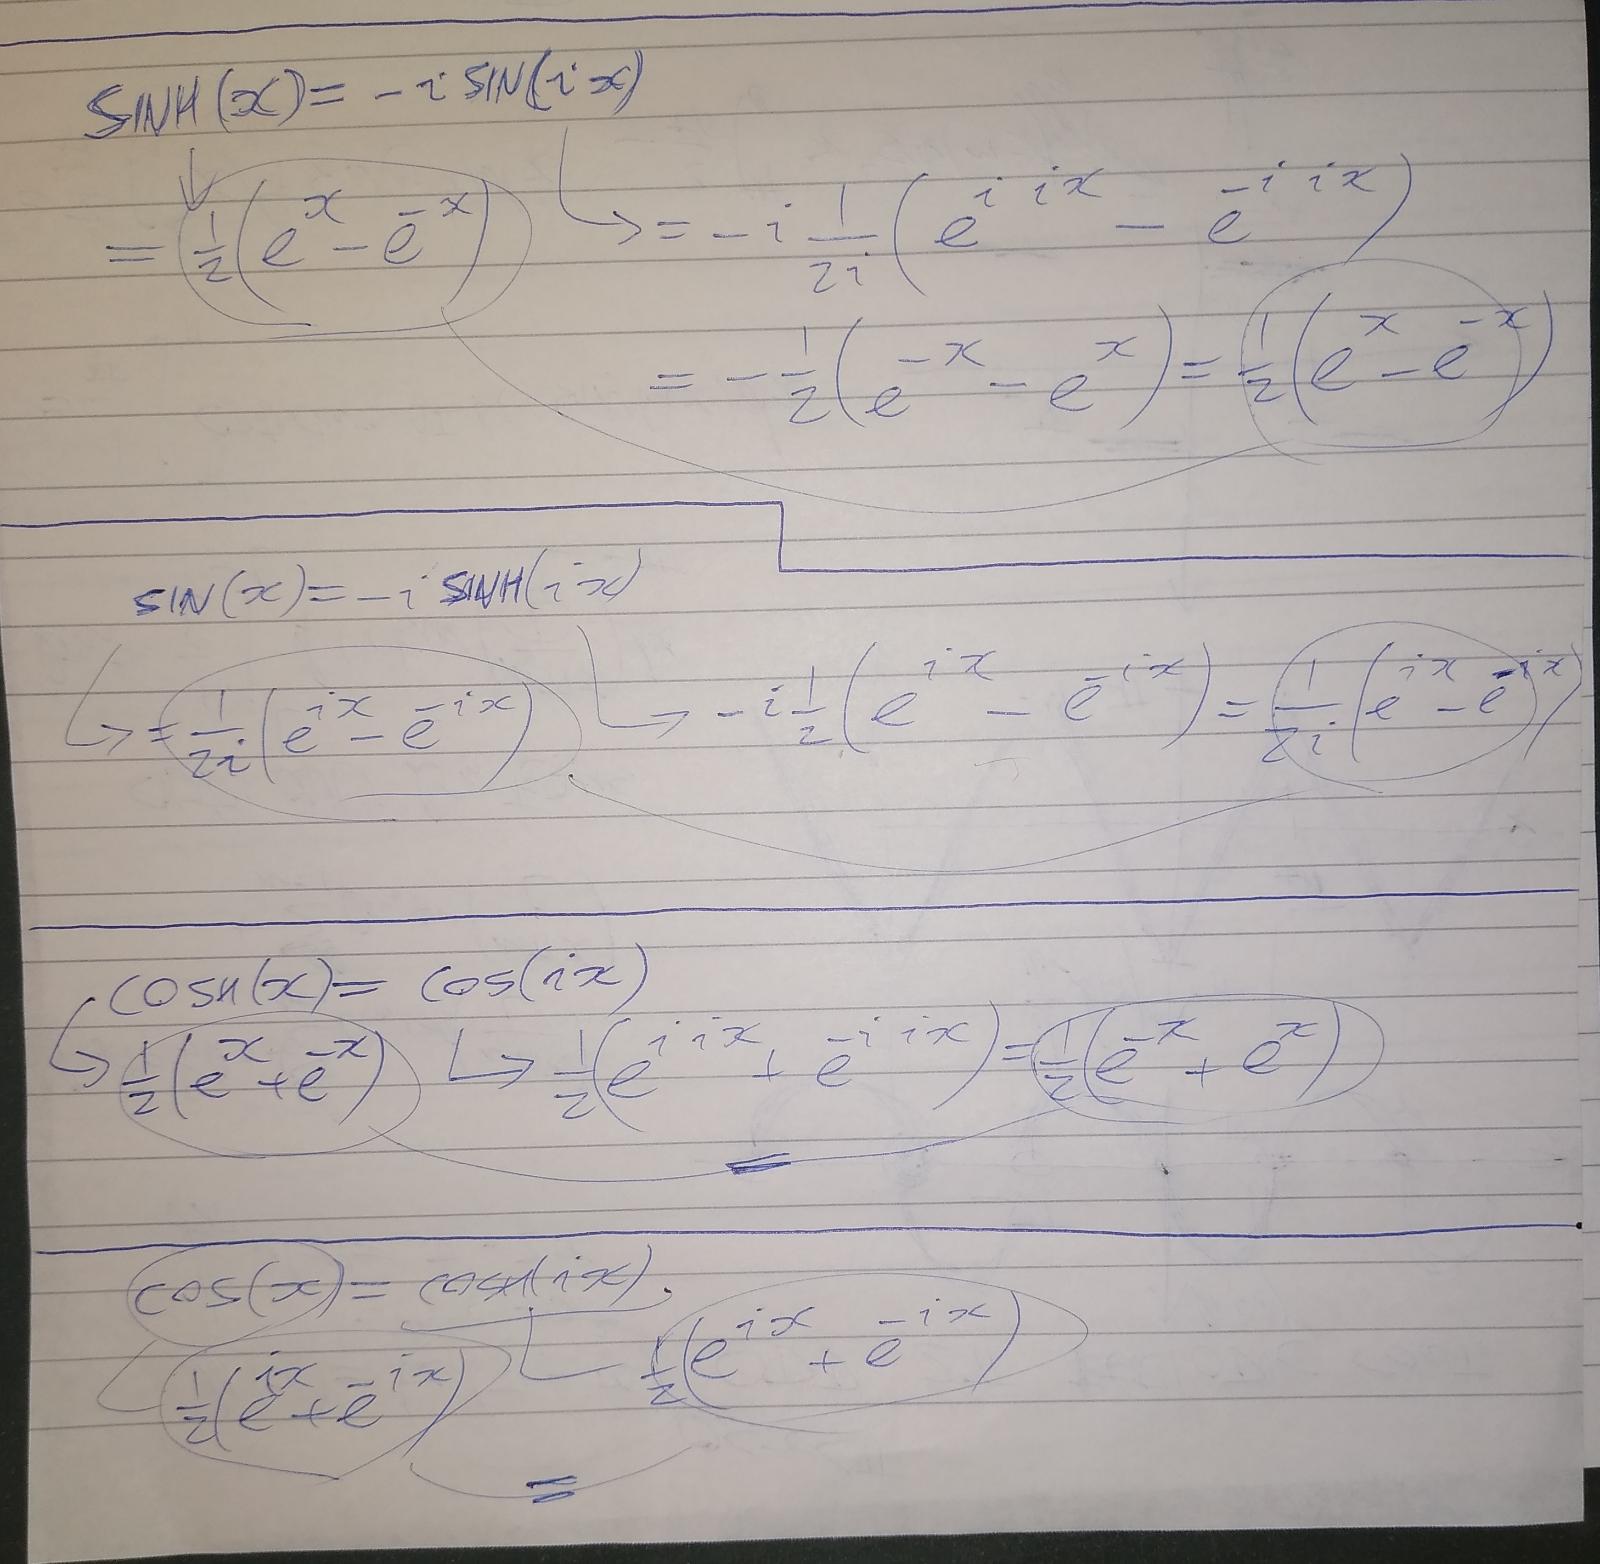 SINH(x) = -i SIN(ix)
= 1/2 (e^x - e^-x) → = -i 1/2i (e^i ix - e^-i ix)
= -1/2 (e^-x - e^x) = 1/2 (e^x - e^-x)
SIN(x) = -i SINH(ix)
→ = 1/2i (e^ix - e^-ix) → -i 1/2 (e^ix - e^-ix) = 1/2i (e^ix - e^-ix)
COSH(x) = COS(ix)
→ 1/2 (e^x + e^-x) → 1/2 (e^i ix + e^-i ix) = 1/2 (e^-x + e^x)
=
COS(x) = COSH(ix).
1/2 (e^ix + e^-ix) 1/2 (e^ix + e^-ix)
=